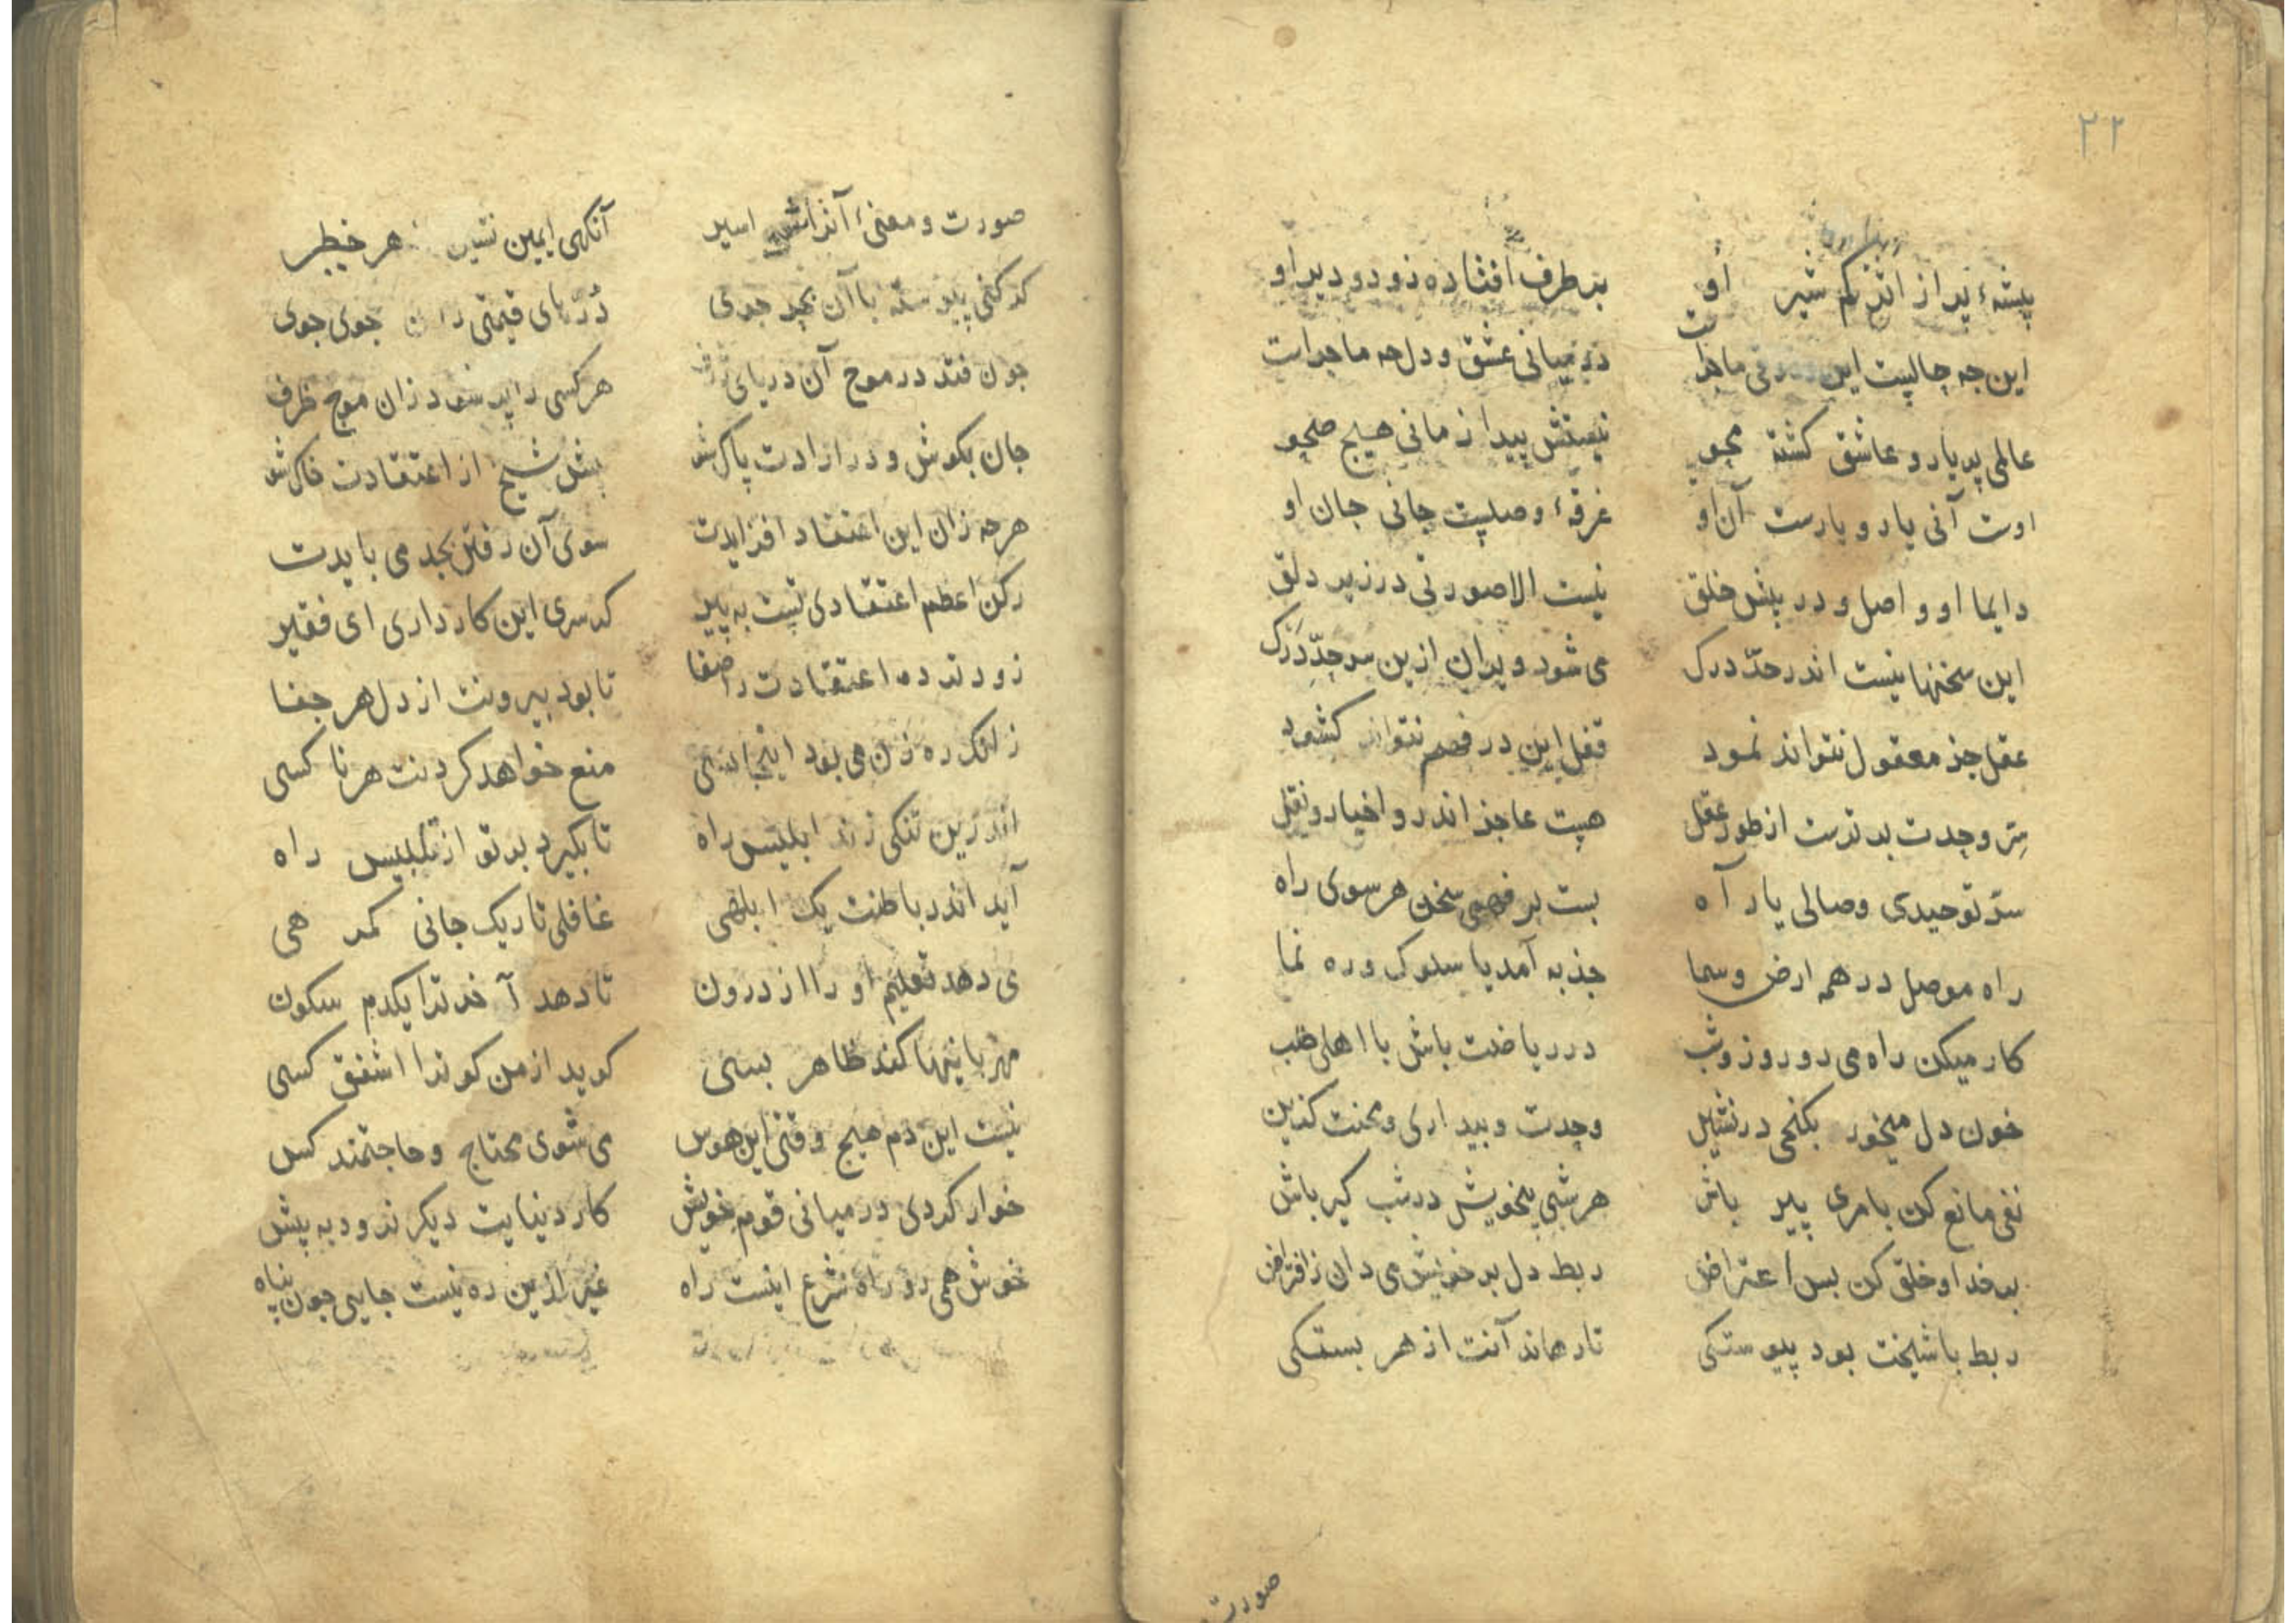 ۲۲
پیشهٔ پر از اندرکم شیر او بر طرف افتاده زود و دیر او
این چه حالیست این ماجراست در میانی عشق و دل چه ماجراست
عالمی پر یار و عاشق کشته محو نیستش پیدا زمانی هیچ صحو
اوت آنی یار و یارست آن او غرقهٔ وصلیت جانی جان او
دایما او واصل و در پیش خلق نیست الا صورتی در زیر دلق
این سخنها نیست اندر حدّ درک می شود ویران ازین سرحدّ درک
عقل جز معقول نتواند نمود قفل این در فهم نتواند کشود
سرّ وحدت برترست از طور عقل هست عاجز اندرو اخیار و نقل
سرّ توحیدی وصالی یار آه بست بر فهمی سخن هر سوی راه
راه موصل در همه ارض و سما جذبه آمد یا سلوک و ره نما
کار میکن راه می رو روز و شب در ریاضت باش با اهلی طلب
خون دل میخور بکنجی در نشین وحدت و بیداری و محنت کزین
نفی مانع کن با مری پیر باش هر شبی بخویش در شب کیر باش
بر خدا و خلق کن بس اعتراض ربط دل بر خویش می دان ز افتراض
ربط با شیخت بود پیوستکی تا رهاند آنت از هر بستکی
صورت
صورت و معنیٔ آنرا اسیر آنکهی ایمن نشین هر خطر
کر کنی پیوسته با آن بحر جوی درّ های قیمتی زان جوی جوی
چون فتد در موج آن دریای ژرف هر کسی را پر شود زان موج ظرف
جان بکوش و در ارادت پاک شو پیش شیخ از اعتقادت خاک شو
هرچه زان این اعتقاد افزایدت سوی آن رفتن بجد می بایدت
رکن اعظم اعتقادی تست به پیر کر سری این کار داری ای فقیر
زودتر ده اعتقادت را صفا تا بود بیرونت از دل هر جفا
زانک ره زن می بود اینجا بسی منع خواهد کردنت هر ناکسی
اندرین تنکی زند ابلیس راه تا بکیرد بر تو از تلبیس راه
آید اندر باطنت یک ابلهی غافلی تاریک جانی کمرهی
می دهد تعلیم او را از درون تا دهد آخر ترا یکدم سکون
مهربانیها کند ظاهر بسی کوید از من کو ترا اشفق کسی
نیست این دم هیچ وقتی این هوس می شوی محتاج و حاجتمند کس
خوار کردی در میانی قوم خویش کار دنیایت دیکر نرود به پیش
خوش همی رو راه شرع اینست راه غیر ازین ره نیست جایی چون پناه